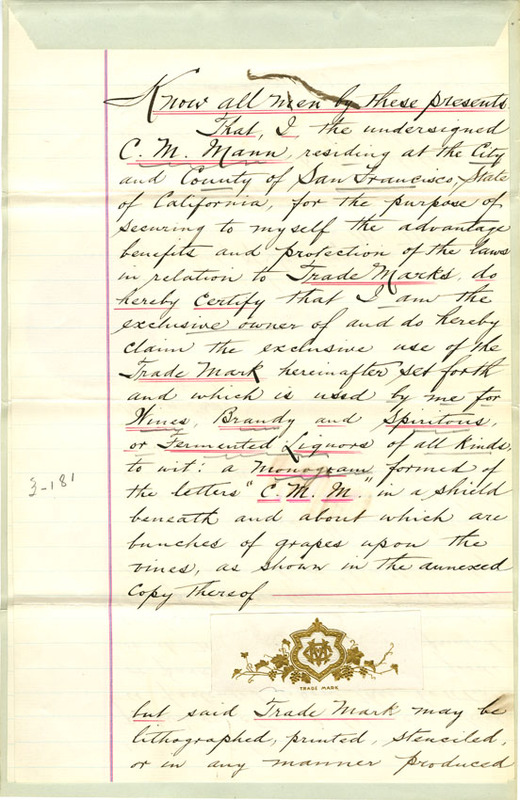 Know all men by these presents
That, I, the undersigned
C. M. Mann, residing at the City
and County of San Francisco, State
of California, for the purpose of
securing to myself the advantage
benefits and protection of the laws
in relation to Trade Marks, do
hereby Certify that I am the
exclusive owner of and do hereby
claim the exclusive use of the
Trade Mark hereinafter set forth
and which is used by me for
Wines, Brandy and Spiritous,
or Fermented Liquors of all kinds,
to wit: a monogram formed of
the letters "C. M. M." in a shield
beneath and about which are
bunches of grapes upon the
vines, as shown in the annexed
Copy thereof
3-181
TRADE MARK
but said Trade Mark may be
lithographed, printed, stenciled,
or in any manner produced